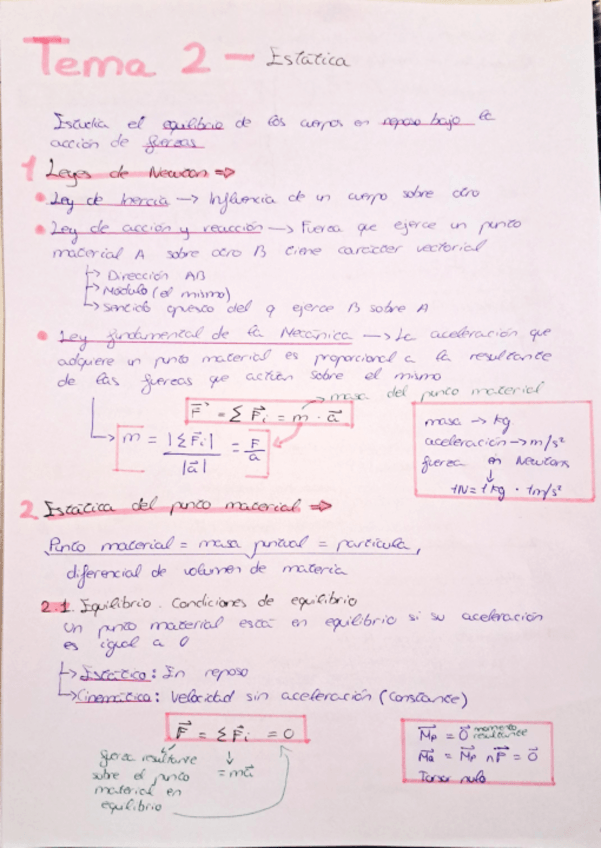 Tema 2 - Estática
Estudia el equilibrio de los cuerpos en reposo bajo la
acción de fuerzas
1 Leyes de Newton ⇒
• Ley de Inercia → Influencia de un cuerpo sobre otro
• Ley de acción y reacción → Fuerza que ejerce un punto
material A sobre otro B tiene carácter vectorial
↳ Dirección AB
↳ Módulo (el mismo)
↳ Sentido opuesto del q ejerce B sobre A
• Ley fundamental de la Mecánica → La aceleración que
adquiere un punto material es proporcional a la resultante
de las fuerzas que actúan sobre el mismo
→ masa del punto material
F⃗ = Σ F⃗i = m · a⃗
↳ m = |Σ F⃗i| / |a⃗| = F / a
masa → kg
aceleración → m/s²
fuerza en Newtons
↓
1N = 1kg · 1m/s²
2 Estática del punto material ⇒
Punto material = masa puntual = partícula,
diferencial de volumen de materia
2.1. Equilibrio. Condiciones de equilibrio
Un punto material está en equilibrio si su aceleración
es igual a 0
↳ Estático: En reposo
↳ Cinemática: Velocidad sin aceleración (constante)
F⃗ = Σ F⃗i = 0
↓
= ma⃗
fuerza resultante
sobre el punto
material en
equilibrio
M⃗p = 0⃗ momento resultante
M⃗a = M⃗p ∧ F⃗ = 0⃗
Tensor nulo